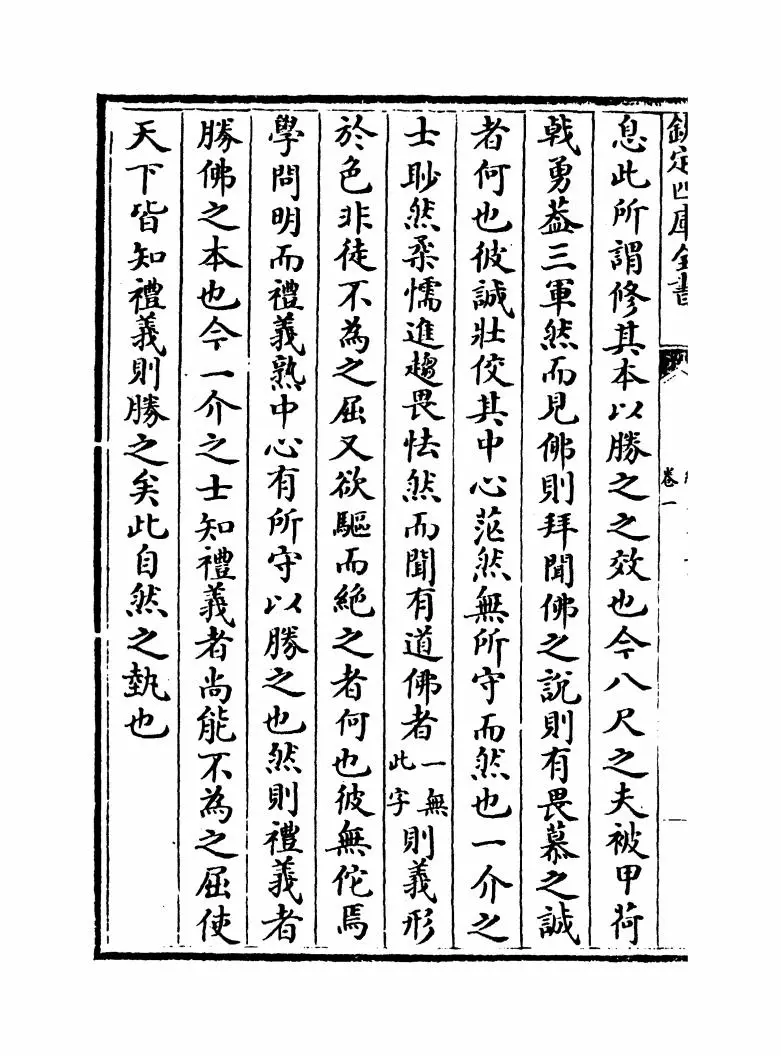 欽定四庫全書
卷一
息此所謂修其本以勝之之效也今八尺之夫被甲荷
戟勇葢三軍然而見佛則拜聞佛之說則有畏慕之誠
者何也彼誠壯佼其中心茫然無所守而然也一介之
士眇然柔懦進趨畏怯然而聞有道佛者一無此字則義形
於色非徒不為之屈又欲驅而絶之者何也彼無佗焉
學問明而禮義熟中心有所守以勝之也然則禮義者
勝佛之本也今一介之士知禮義者尚能不為之屈使
天下皆知禮義則勝之矣此自然之埶也